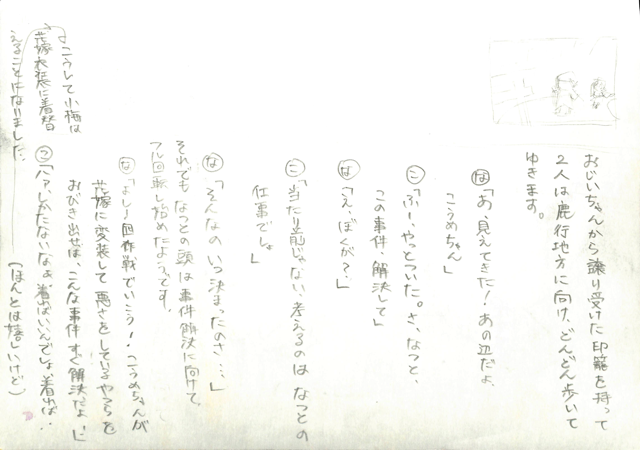 おじいちゃんから譲り受けた印籠を持って
2人は鹿行地方に向け、どんどん歩いて
ゆきます。
な「あ、見えてきた!あの辺だよ、
こうめちゃん」
こ「ふー、やっとついた。さ、なつと、
この事件、解決して」
な「え、ぼくが?」
こ「当たり前じゃない、考えるのは なつとの
仕事でしょ」
な「そんなの いつ決まったのさ…」
それでも なつとの頭は 事件解決に向けて、
フル回転し始めたようです。
な「よし!回作戦でいこう!こうめちゃんが
花嫁に変装して 悪さをしているやつらを
おびき出せば、こんな事件 すぐ解決だよ!」
こ「ハァ、しかたないなぁ 着ればいいんでしょ、着れば‥
(ほんとは嬉しいけど)
こうして小梅は
花嫁衣装に着替
えることになりました。